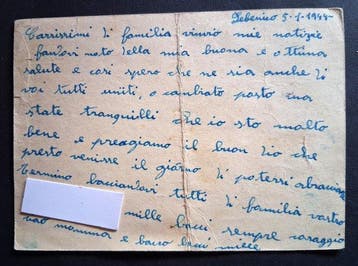 Sebenico 5-1-1943-
Carrissimi di familia vinvio mie notizie
fandovi noto della mia buona e ottima
salute e cosi spero che ne sia anche di
voi tutti uniti, o cambiato posto ma
state tranquilli che io sto molto
bene e preagiamo il buon Dio che
presto venisse il giorno di poterri abraciare
Termino baciandovi tutti di familia vastro
mille bacci sempre coraggio
mamma e bacci mille